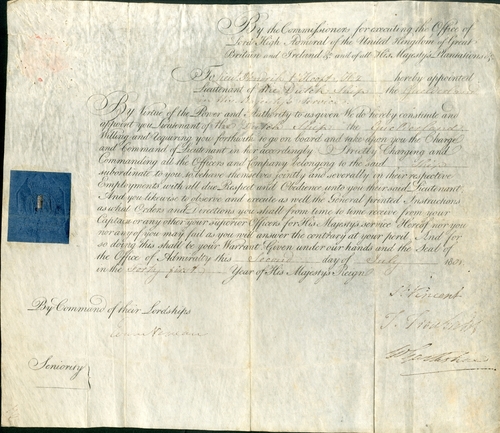 By the Commissioners for executing the Office of
Lord High Admiral of the United Kingdom of Great
Britain and Ireland &c and of all His Majesty's Plantations &c
To hereby appointed
Lieutenant of the Dutch the
in His Majesty's Service
By Virtue of the Power and Authority to us given We do hereby constitute and
appoint you Lieutenant of the Dutch the
Willing and Requiring you forthwith to go on board and take upon you the Charge
and Command of Lieutenant in her accordingly. Strictly Charging and
Commanding all the Officers and Company belonging to the said
subordinate to you to behave themselves jointly and severally in their respective
Employments with all due Respect and Obedience unto you their said Lieutenant
And you likewise to observe and execute as well the General printed Instructions
as what Orders and Directions you shall from time to time receive from your
Captain or any other your superior Officers for His Majesty's service Hereof nor you
nor any of you may fail as you will answer the contrary at your peril And for
so doing this shall be your Warrant Given under our hands and the Seal of
the Office of Admiralty this Second day of July
in the Forty first Year of His Majesty's Reign
St Vincent
By Command of their Lordships
Seniority